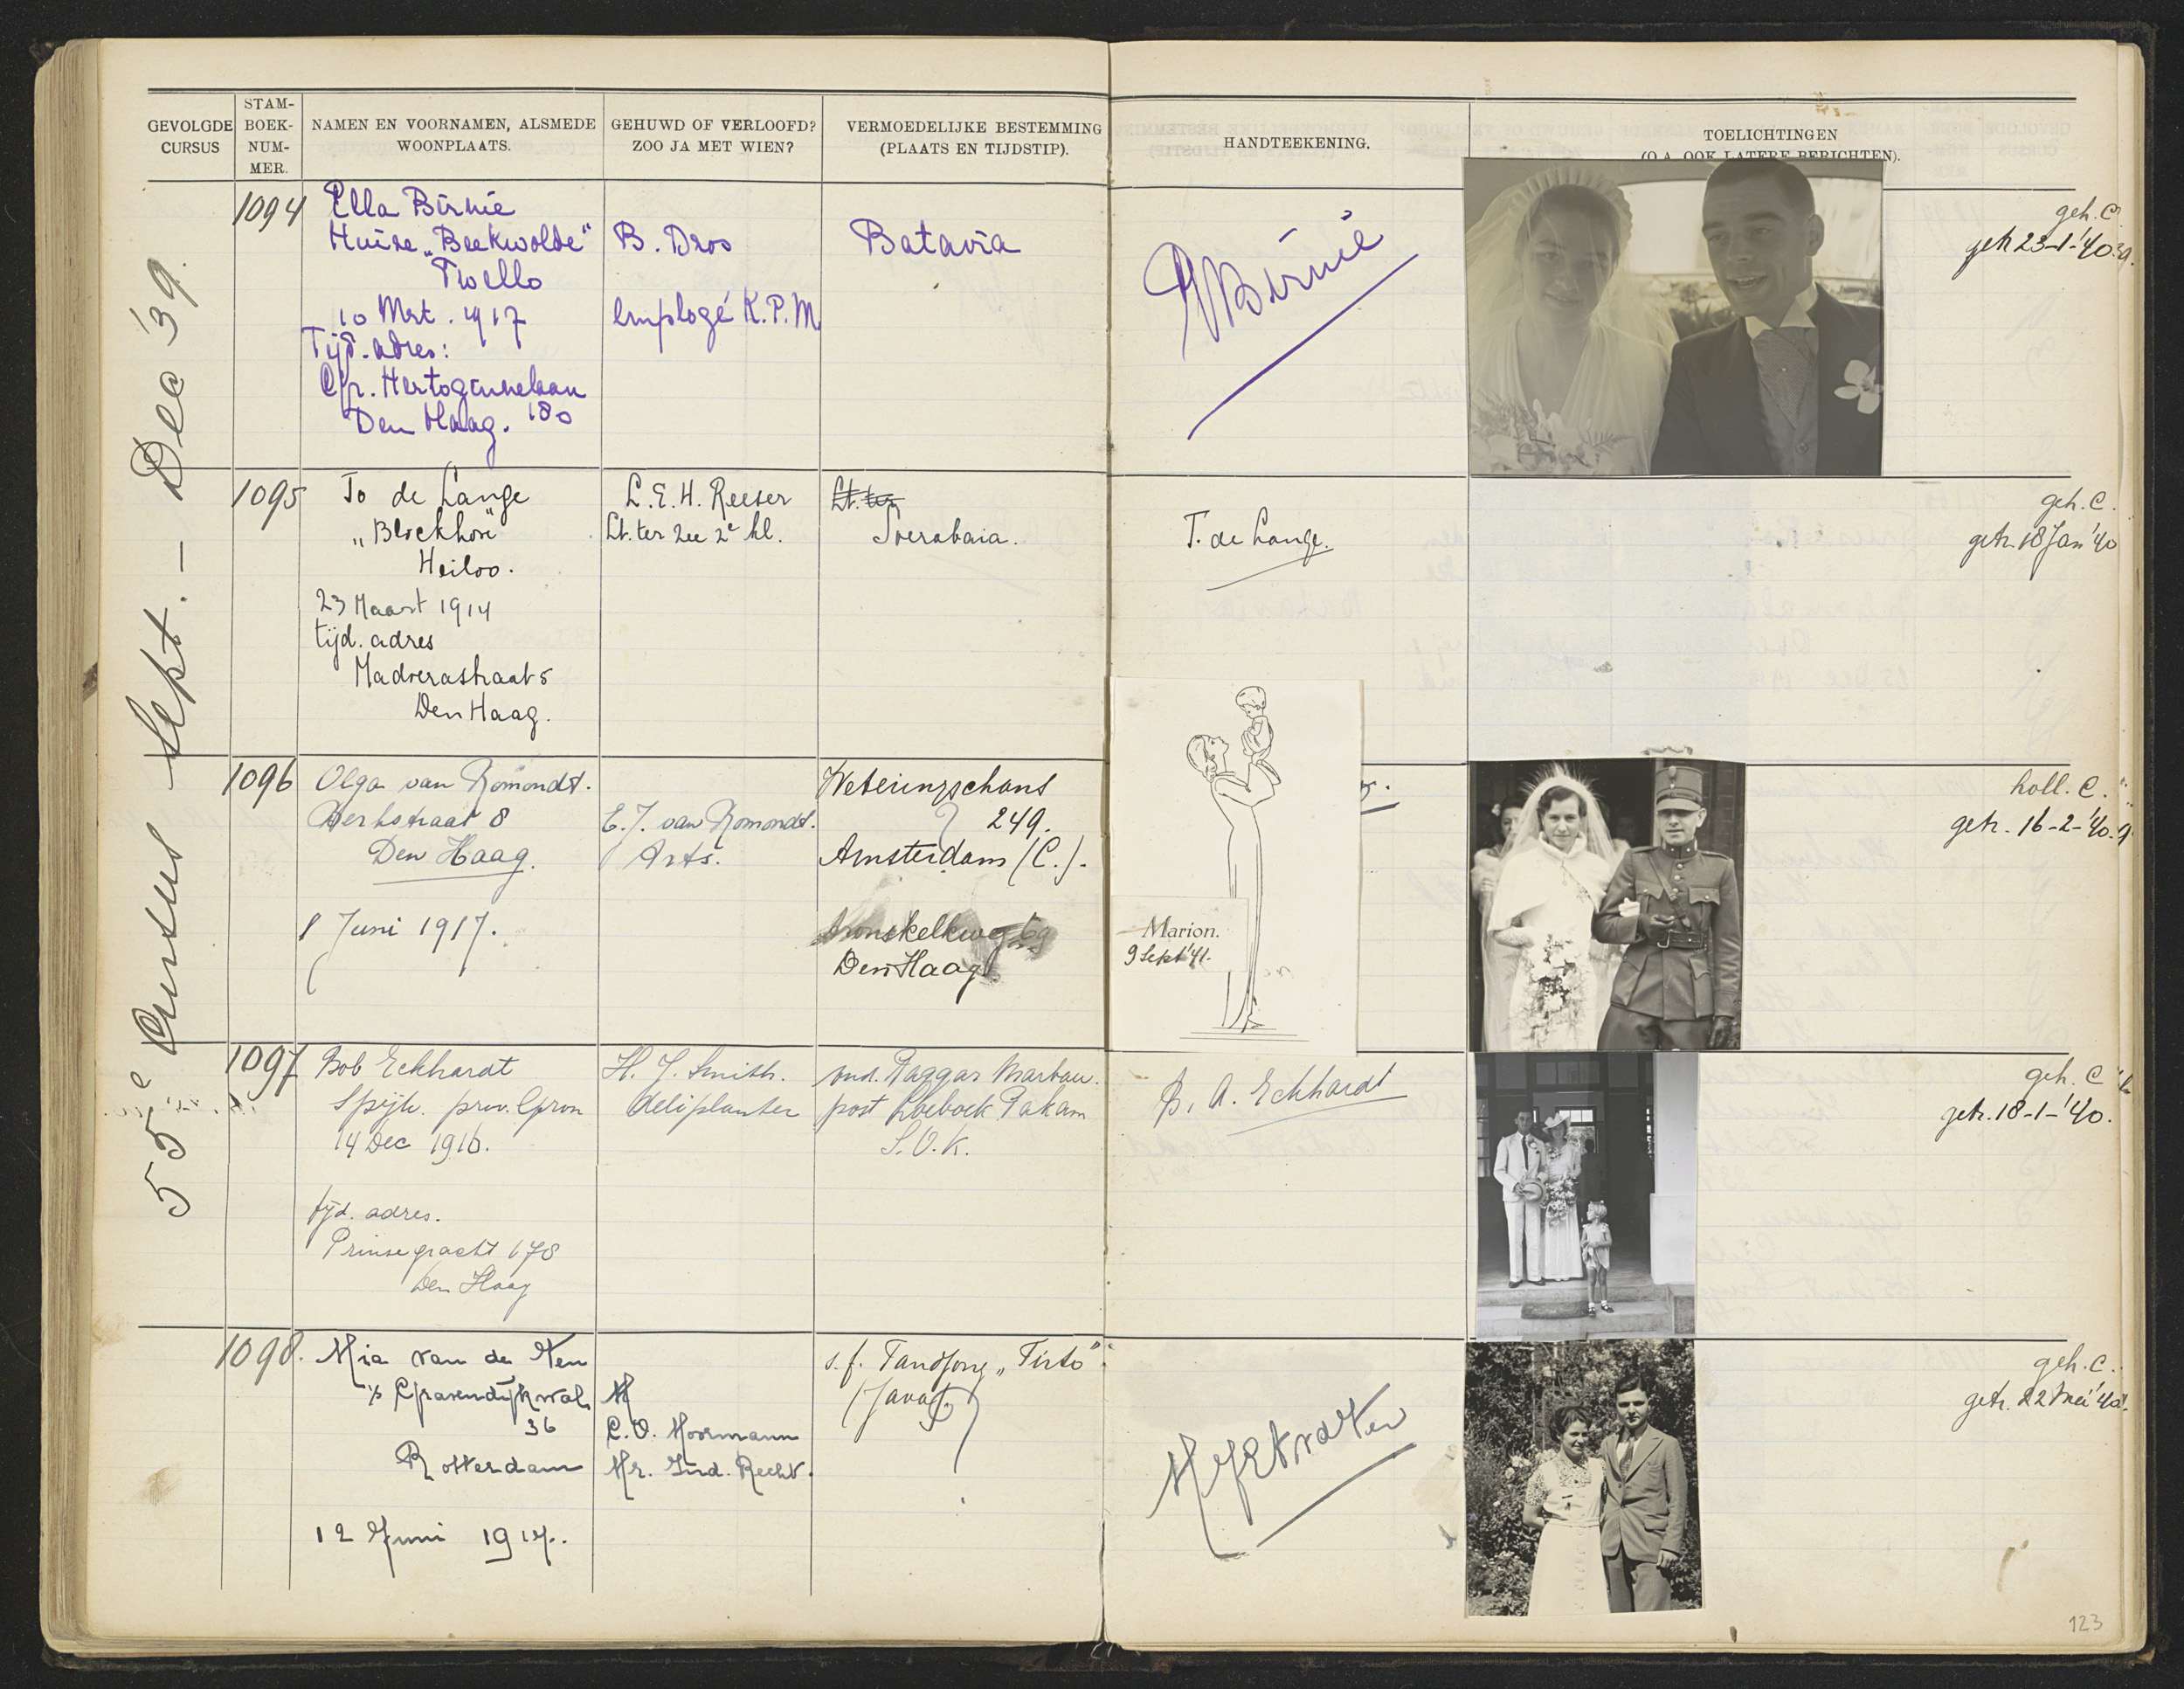 GEVOLGDE CURSUS
STAM-BOEK-NUM-MER.
NAMEN EN VOORNAMEN, ALSMEDE WOONPLAATS.
GEHUWD OF VERLOOFD? ZOO JA MET WIEN?
VERMOEDELIJKE BESTEMMING (PLAATS EN TIJDSTIP).
HANDTEEKENING.
TOELICHTINGEN
(O.A. OOK LATERE BERICHTEN).
55e Cursus Sept. – Dec '39.
1094
Ella Birnie
Huize „Beekwolde"
Twello
10 Mrt. 1917
Tijd. adres:
Hertoginnelaan
180
Den Haag.
B. Dros
employé K.P.M.
Batavia
Birnie
geh. C.
getr 23-1-'40
1095
To de Lange
„Blockhove"
Heiloo.
23 Maart 1914
tijd. adres
Madoerastraat 5
Den Haag.
L.E.H. Reeser
Lt. ter zee 2e kl.
Lt. ter
Soerabaia.
T. de Lange.
geh. C.
getr. 18 Jan '40
1096
Olga van Romondt.
8
Den Haag.
1 Juni 1917.
E.J. van Romondt.
Arts.
Weteringschans
249.
Amsterdam (C.).
69
Den Haag
Marion.
9 Sept '41.
holl. C.
getr. 16-2-'40.
1097
Bob Eckhardt
Spijk. prov. Gron
14 Dec 1916.
tijd. adres.
Prinsegracht 178
Den Haag
H. J. Smith.
deliplanter
ond. Paggar Marbau.
post Loeboek Pakam
S.O.K.
B. A. Eckhardt
geh. C
getr. 18-1-'40.
1098.
Mia van der Ven
's Gravendijkwal
36
Rotterdam
12 Juni 1914.
M
C.O. Moormann
Mr. Ind. Recht.
s.f. Tandjong „Tirto"
(Java)
geh. C.
getr. 22 Mei '40.
123